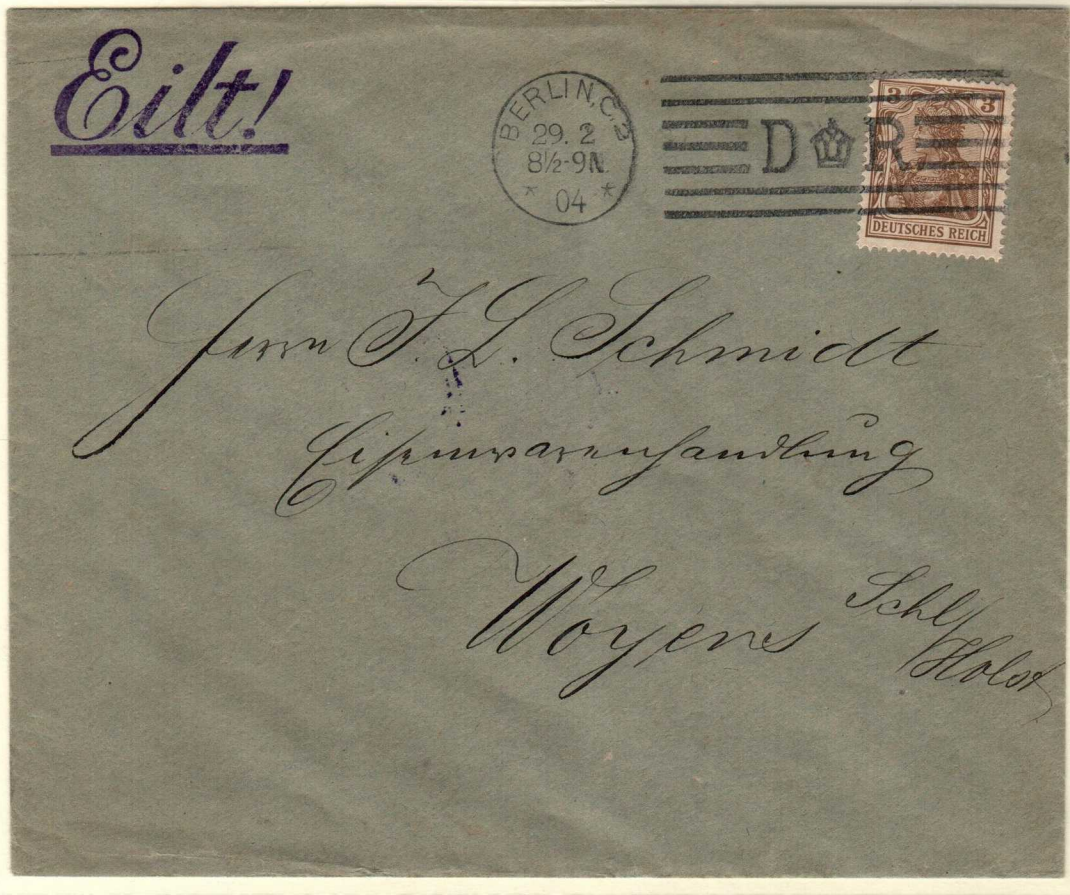 Eilt!
BERLIN, C. 2
29. 2
8½-9 N.
* 04 *
D R
3 3
DEUTSCHES REICH
Herrn J. L. Schmidt
Eisenwarenhandlung
Woyens Schl/
Holst